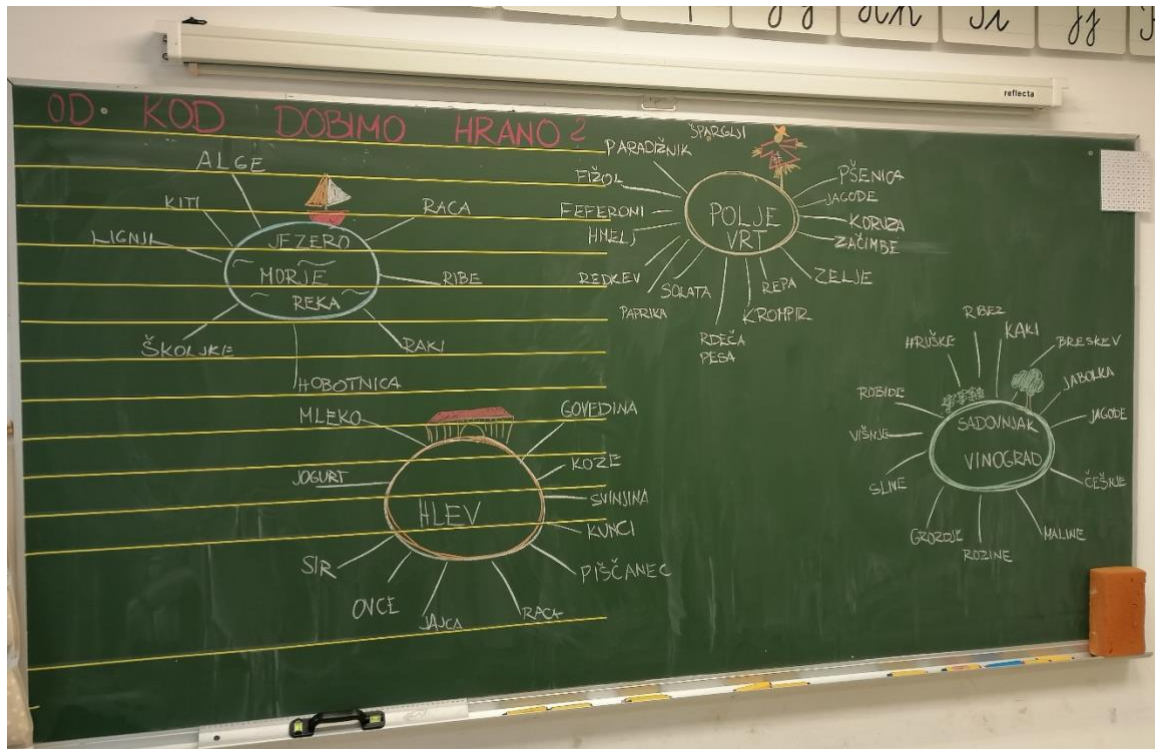 reflecta
OD KOD DOBIMO HRANO?
ALGE
KITI
LIGNJI
ŠKOLJKE
HOBOTNICA
RAKI
RIBE
RACA
JEZERO
MORJE
REKA
ŠPARGLJI
PARADIŽNIK
FIŽOL
FEFERONI
HMELJ
REDKEV
PAPRIKA
SOLATA
RDEČA
PESA
KROMPIR
REPA
ZELJE
ZAČIMBE
KORUZA
JAGODE
PŠENICA
POLJE
VRT
MLEKO
JOGURT
SIR
OVCE
JAJCA
RACA
PIŠČANEC
KUNCI
SVINJINA
KOZE
GOVEDINA
HLEV
RIBEZ
KAKI
HRUŠKE
BRESKEV
JABOLKA
JAGODE
ČEŠNJE
MALINE
ROZINE
GROZDJE
SLIVE
VIŠNJE
ROBIDE
SADOVNJAK
VINOGRAD